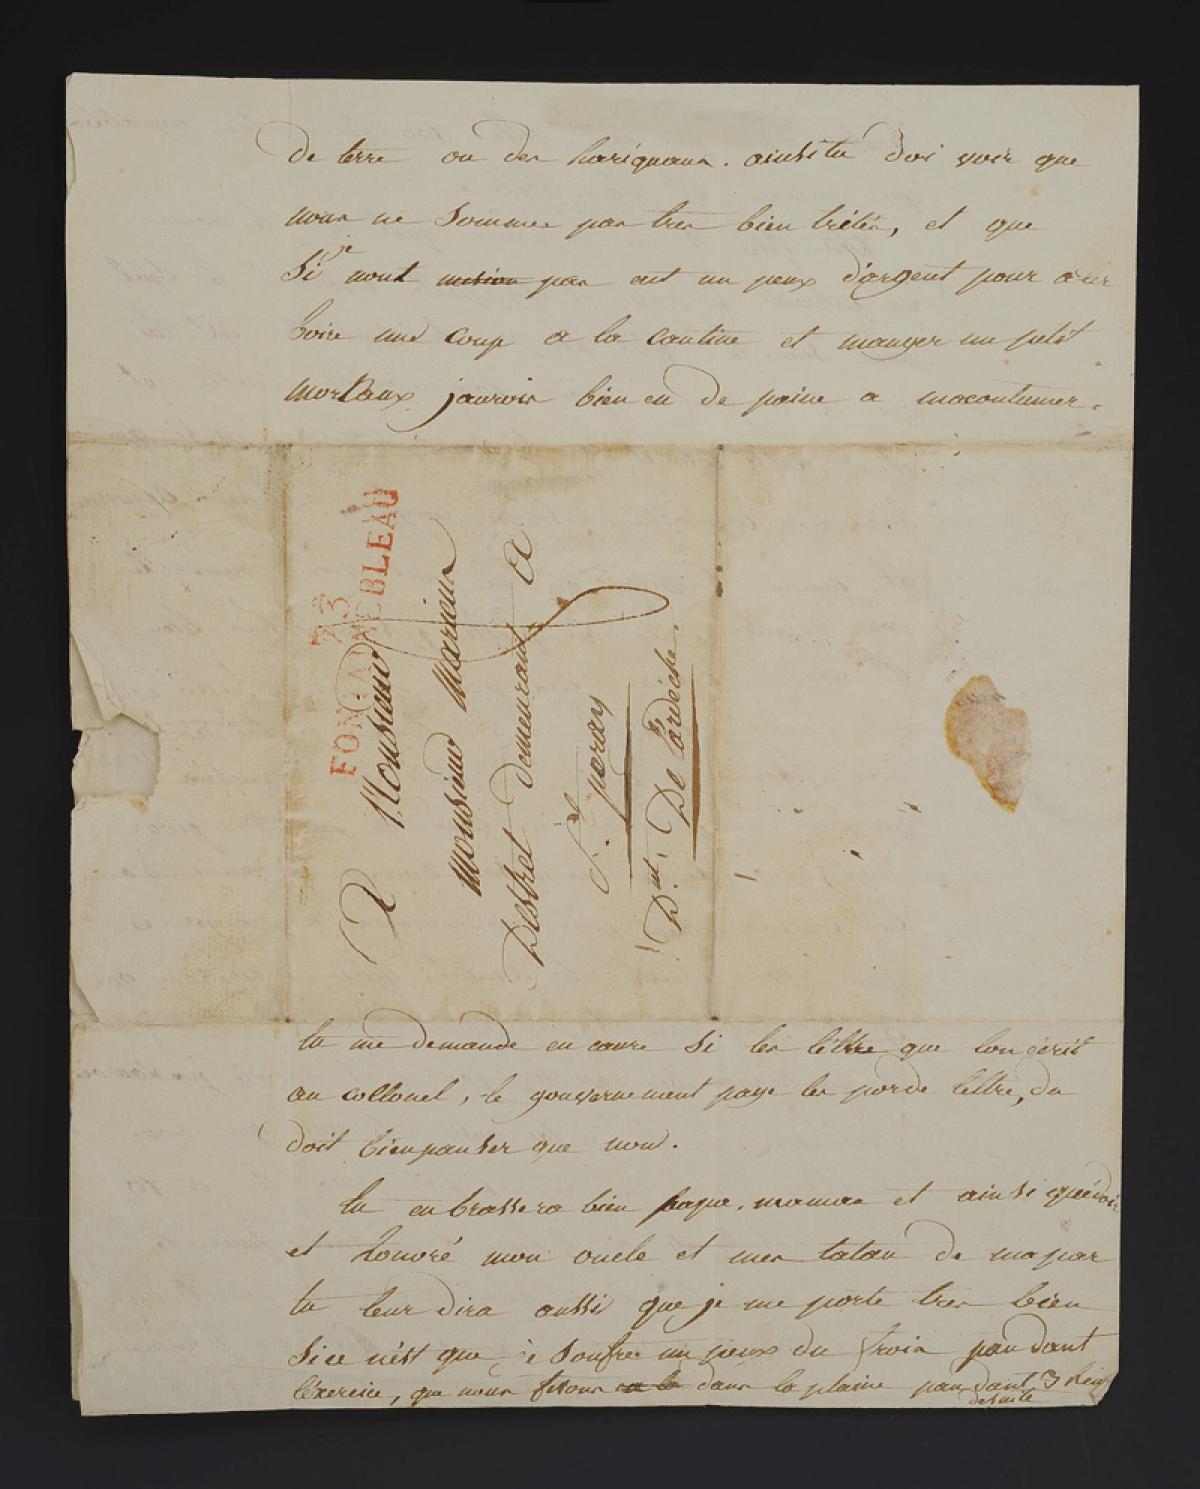 de terre ou des hariquaux. ainsi tu dois voir que
nous ne sommes pas tres bien trétés, et que
Si je nout pas eut un peux d'argent pour aler
boire une coup a la cantine et manger un petit
mortaux jaurois bien eu de paine a macoutumer.
73
FONTAINEBLEAU
A Monsieur
Monsieur Marieux
Destret demeurant a
St. peray
Dnt. De Lardéche.
tu me demande encaure Si les léttre que lon écrit
au collonel, le gouvernement paye les porde lettre, du
doit bien panser que non.
tu enbrassera bien papa, maman et ainsi que
et honoré mon oncle et mes tatan de ma par
tu leur dira aussi que je me porte tres bien
Si ce nést que je soufre un peux du froin pandant
léxercice, que nous fesons dans la plaine pandant 3
de suite